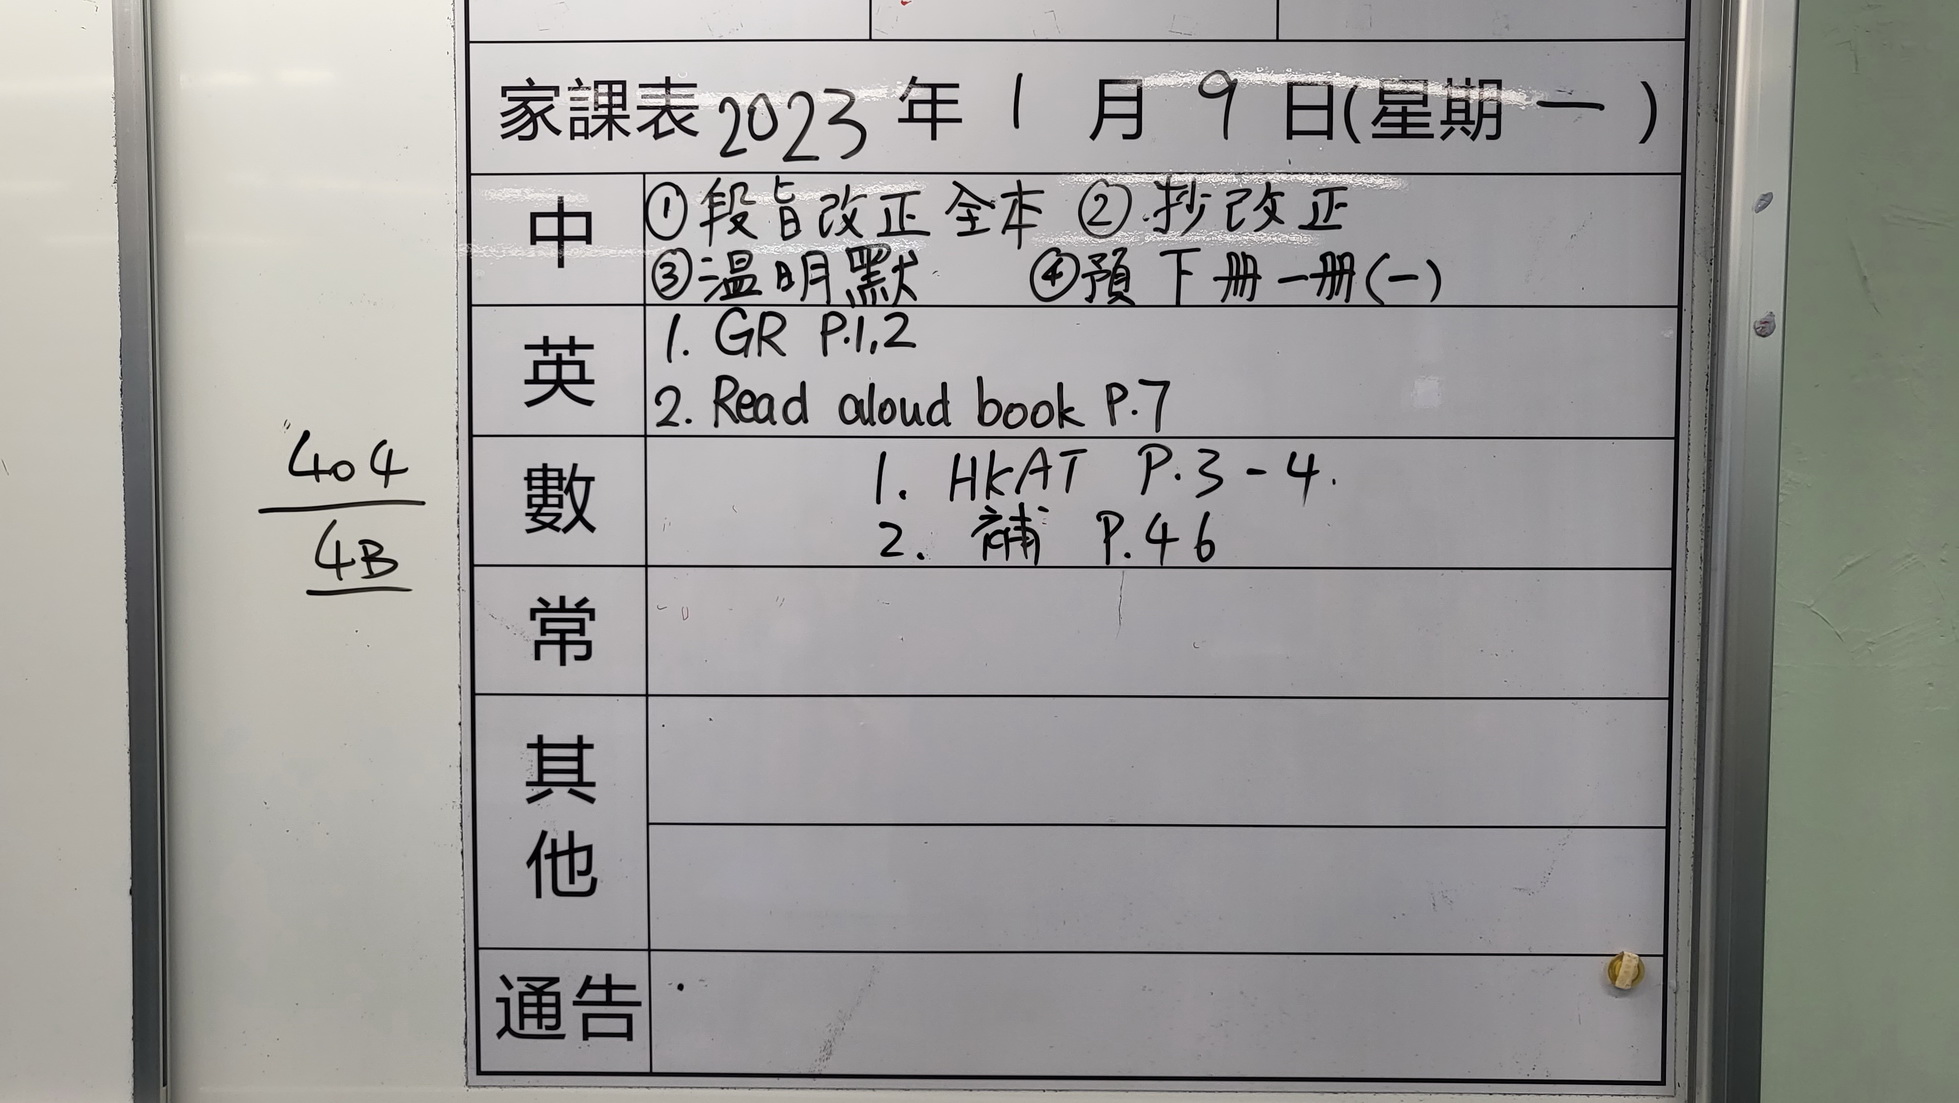 家課表 2023 年 1 月 9 日(星期 一 )
中
①段旨改正全本 ②抄改正
③温明默 ④預下冊一冊(一)
英
1. GR P.1,2
2. Read aloud book P.7
數
1. HKAT P.3-4.
2. 補 P.46
常
其他
通告
404
4B